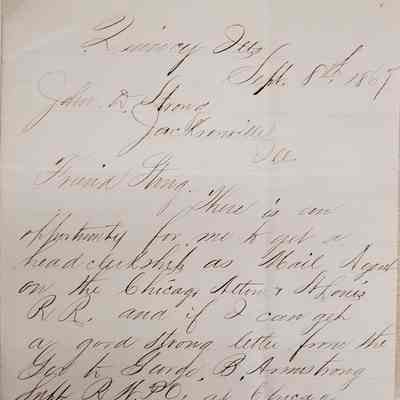 Quincy Ills
Sept. 8th 1867
John. D. Strong
Jacksonville
Ills
Friend Strong.
There is an
opportunity for me to get a
head clerkship as Mail Agent
on the Chicago, Alton & St. Louis
R R. and if I can get
a good strong letter from the
Gov to George. B. Armstrong
Supt R. M. P.O. at Chicago